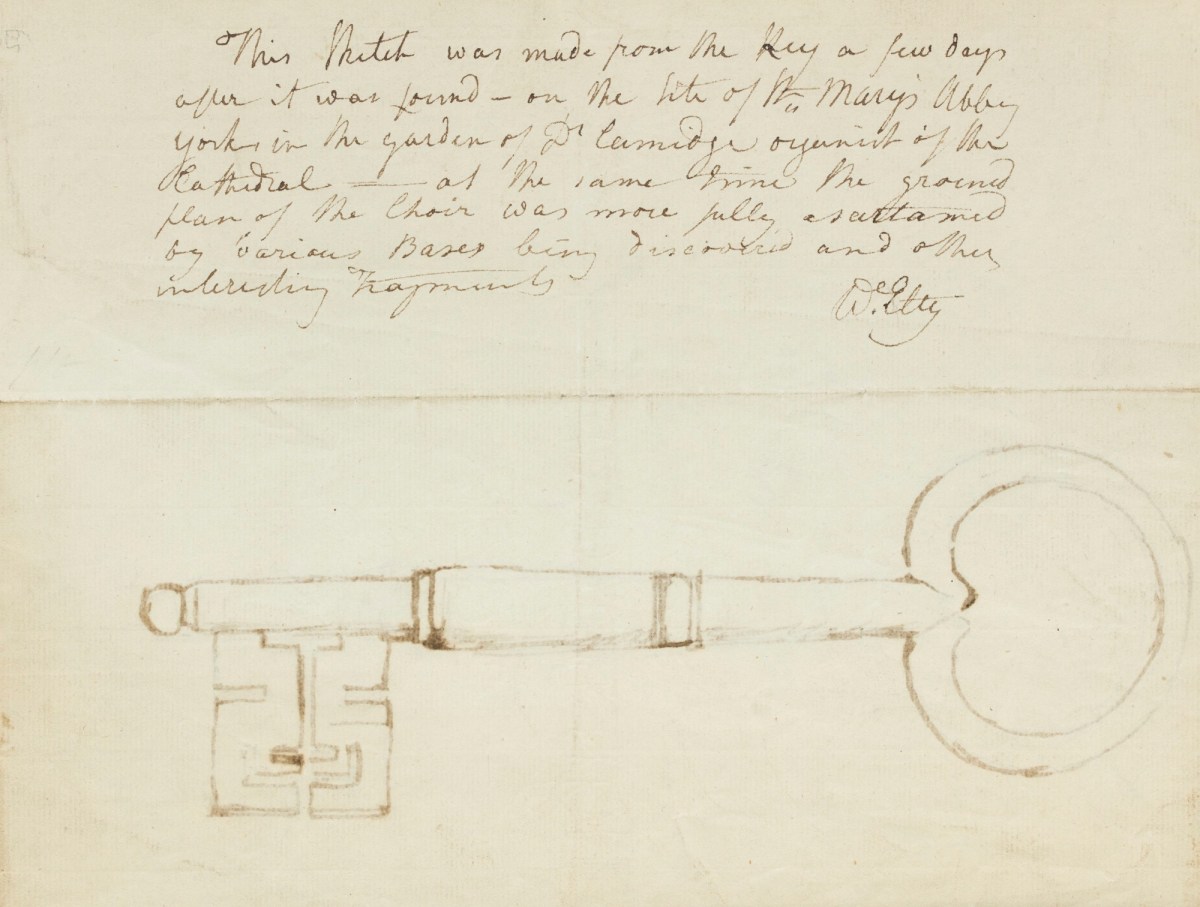 This Sketch was made from the Key a few days
after it was found – on the site of St. Mary's Abbey
York, in the garden of Dr Camidge organist of the
Cathedral — at the same time the ground
plan of the Choir was more fully asartained
by various Bases being discovered and other
interesting Fragments
Wm. Etty